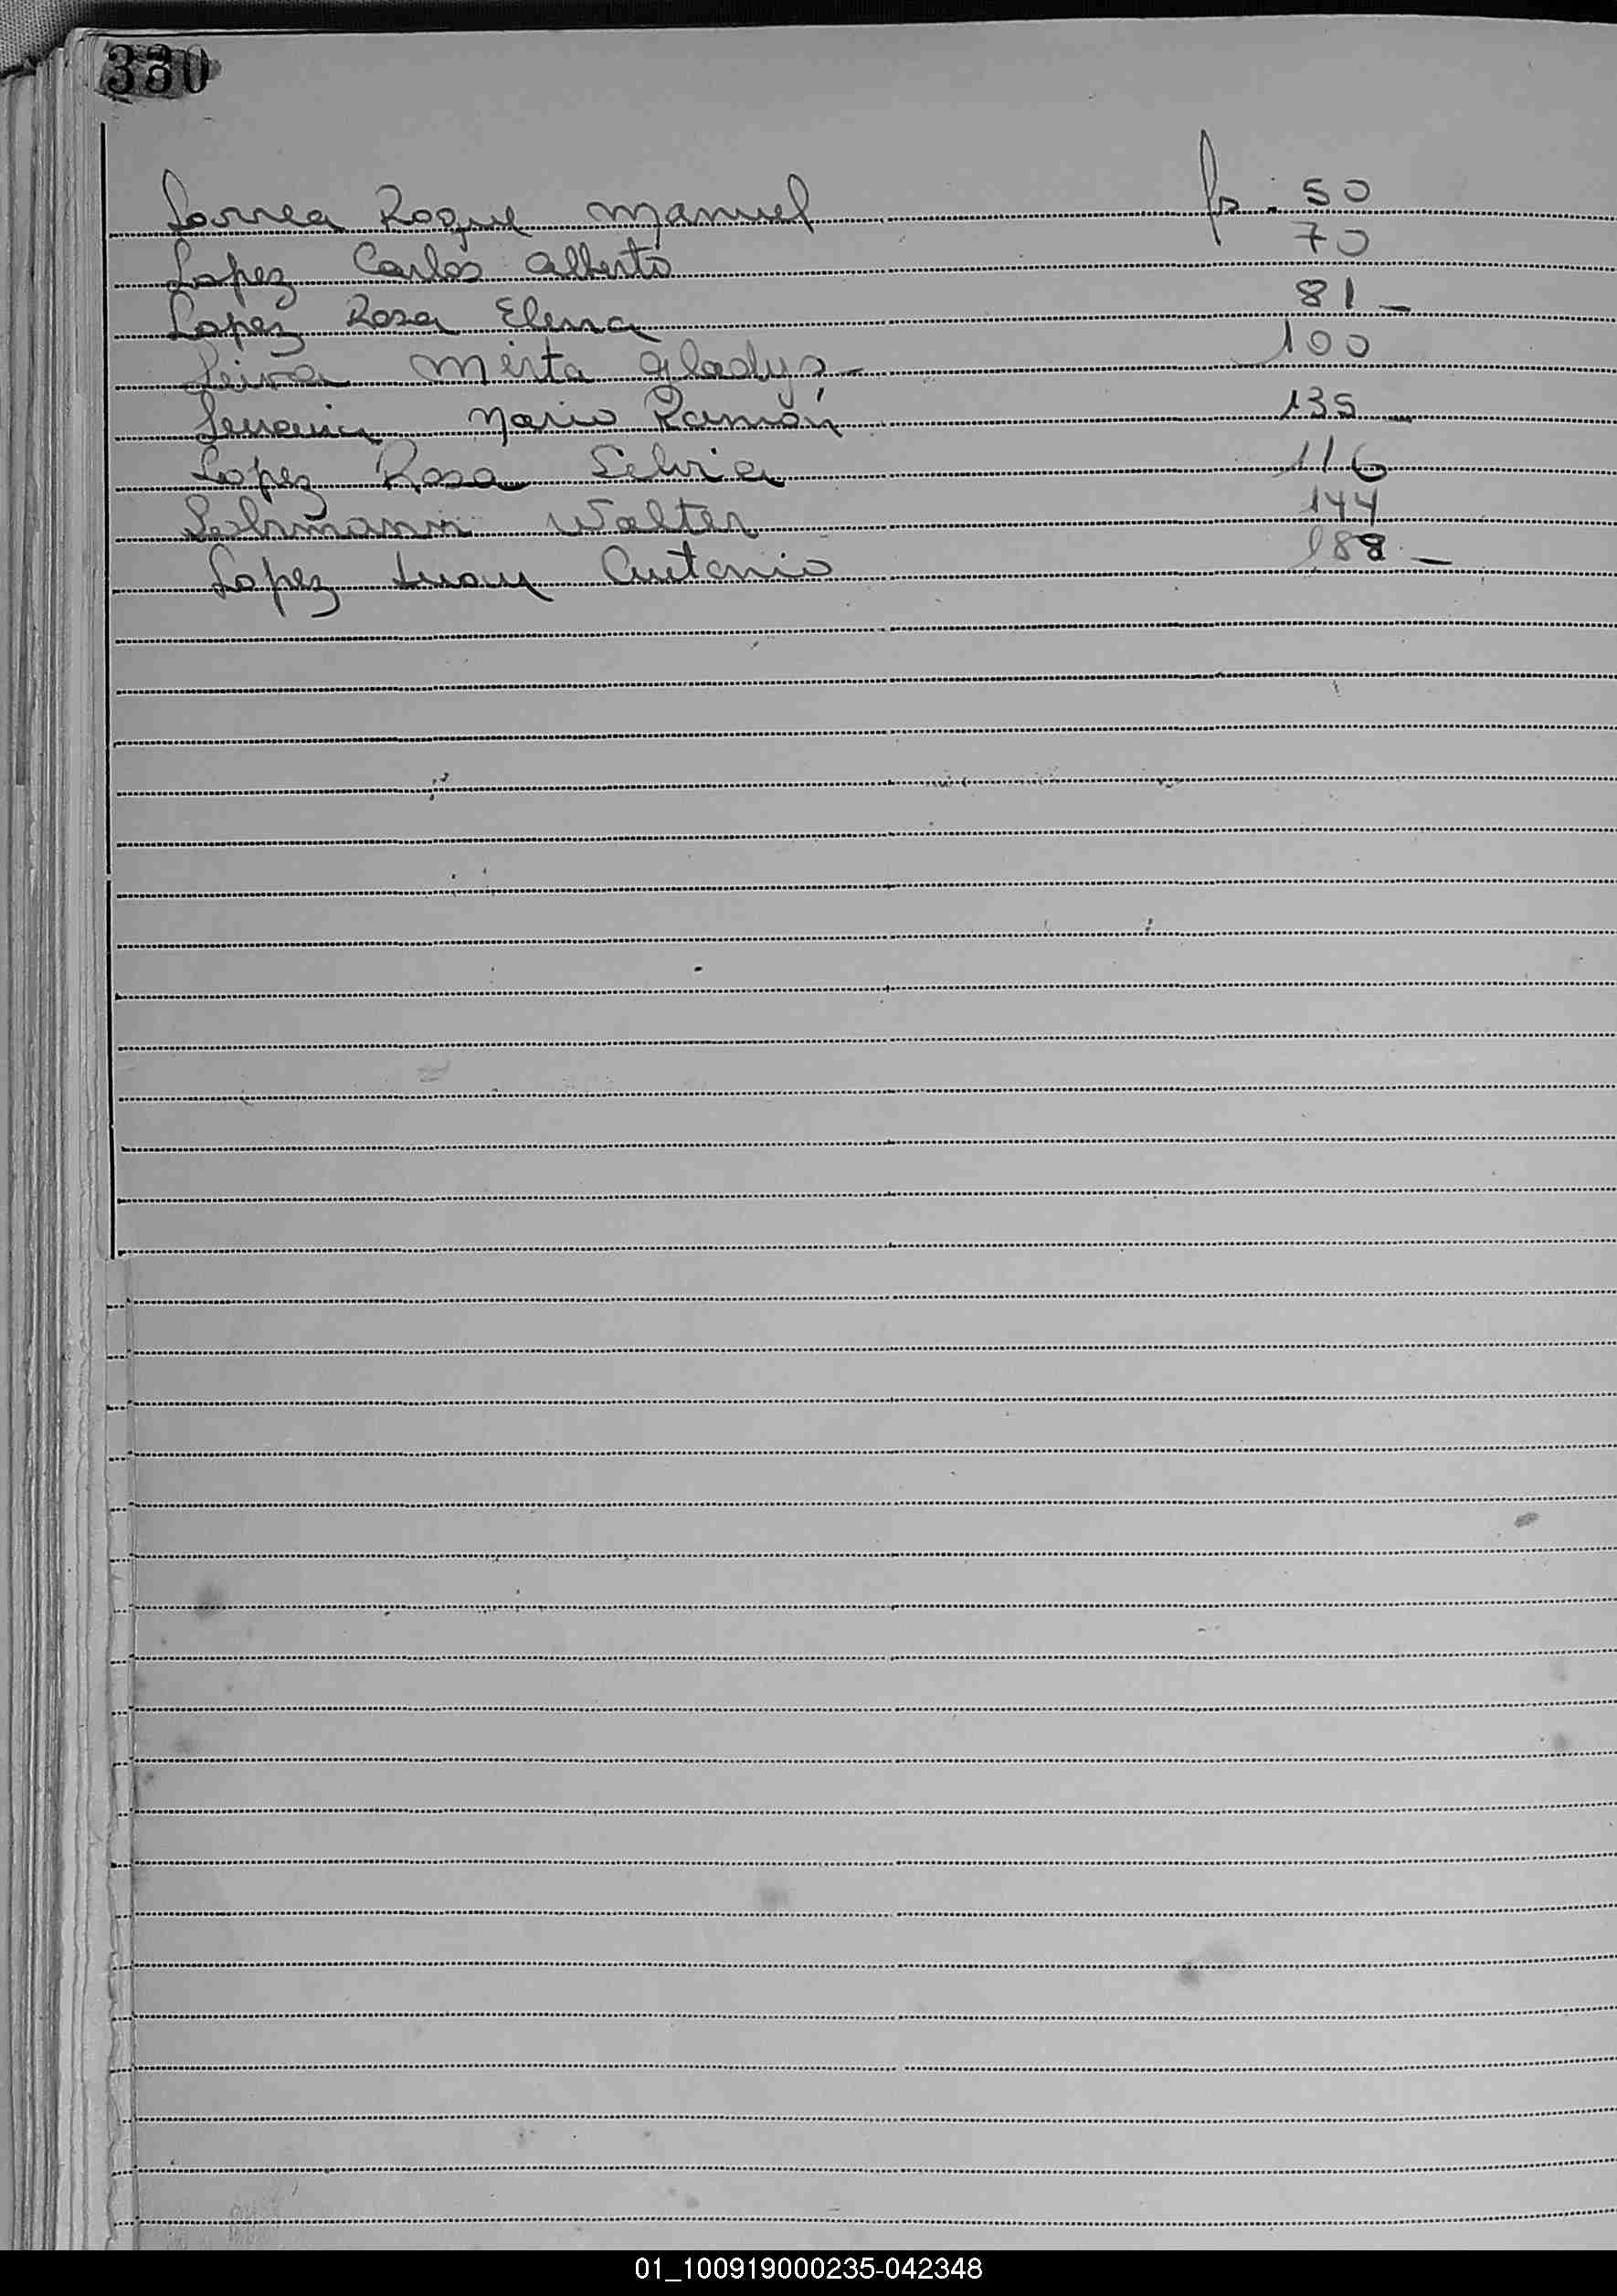 330
Lorrea Roque Manuel fs. 50
Lopez Carlos Alberto 70
Lopez Rosa Elena 81 -
Leiva Mirta Gladys - 100
Mario Ramón 135 -
Lopez Rosa Silvia 116
Lohrmann Walter 144
Lopez Juan Antonio 188 -
01_100919000235-042348